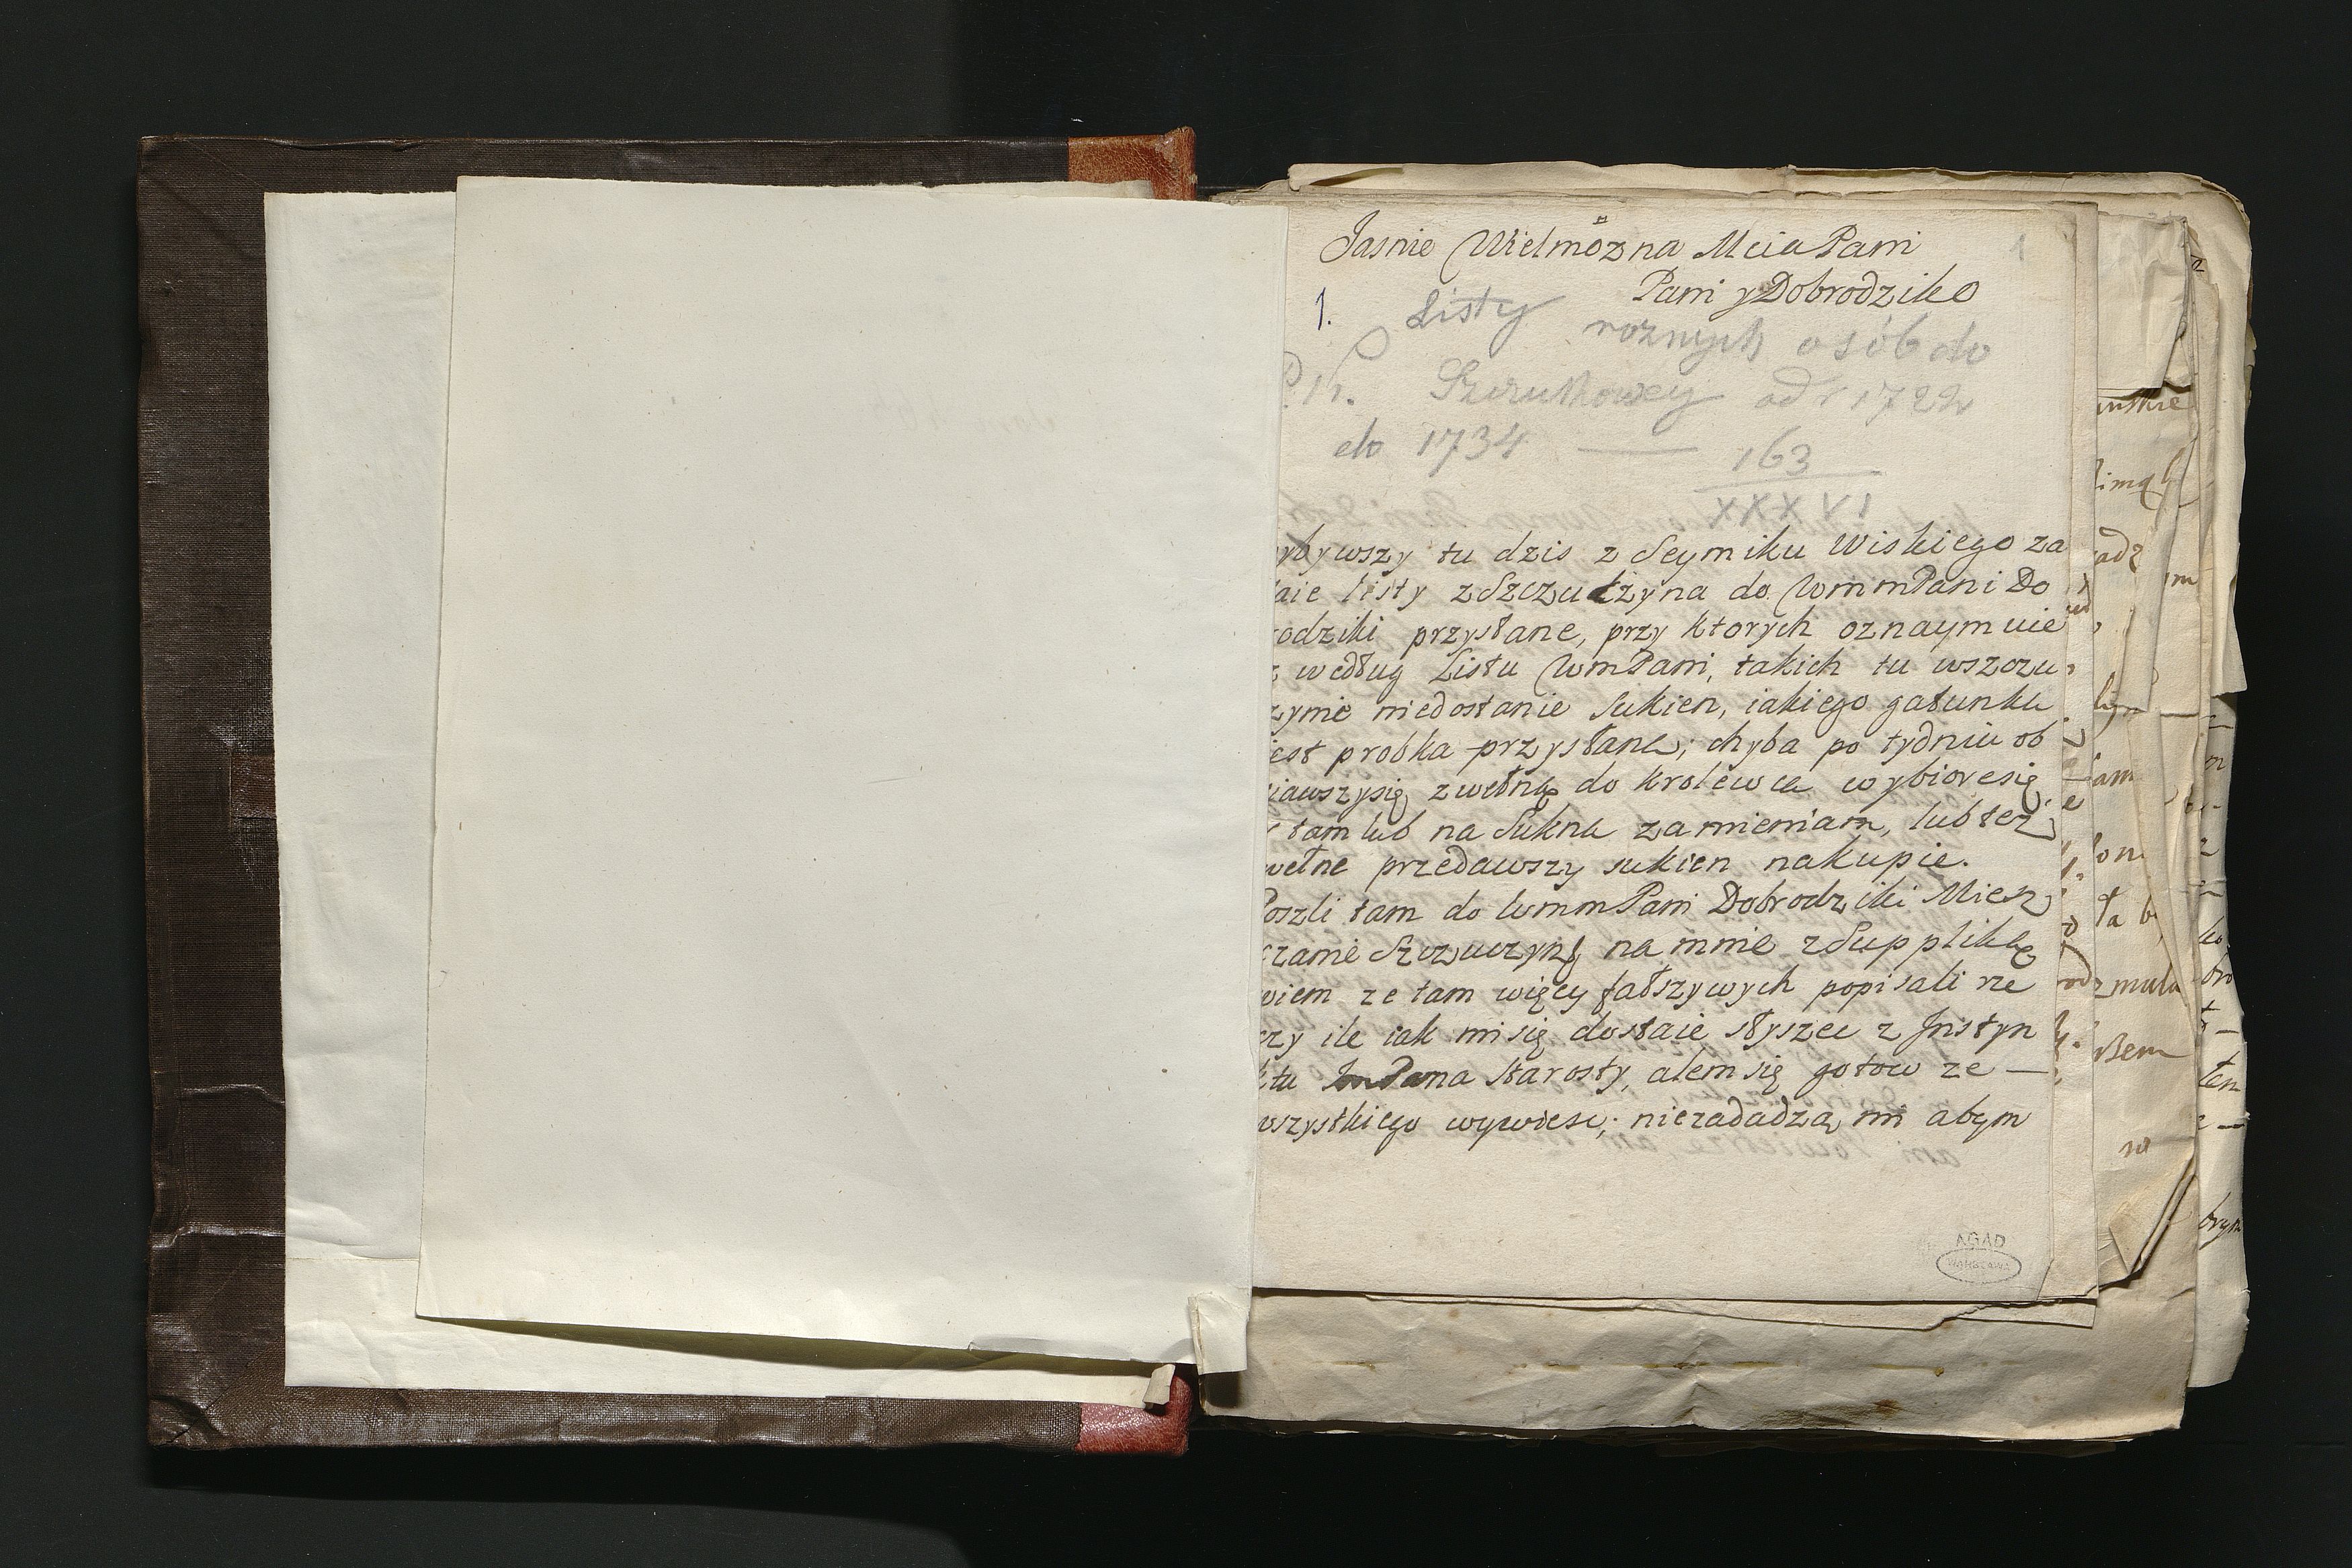 Jasnie Wielmożna Mcia Pani
1
Pani y Dobrodziko
1.
Listy roznych osób do
P. K. Szczukowey od r 1722
do 1734 — 163
XXXVI
ybywszy tu dzis z Seymiku Wiskiego za
aie listy z Szczuczyna do WmmPani Do
rodziki przysłane, przy ktorych oznaymuie
z według Listu WmPani, takich tu wszczu
zynie niedostanie Sukien, iakiego gatunku
iest probka przysłana; chyba po tydniu ob
iawszysię zwełną do krolewca wybioresię
y tam lub na Sukna zamieniam, lub też
wełne przedawszy sukien nakupie.
Poszli tam do WmmPani Dobrodziki Miesz
czanie Szczuczyns na mnie z Suppliką
wiem ze tam więcy fałszywych popisali rze
czy ile iak mi się dostaie słyszec z Jnstyn
ktu JmPana Starosty, alem się gotow ze —
wszystkiego wywiesc; niezadadzą mi abym
AGAD
WARSZAWA